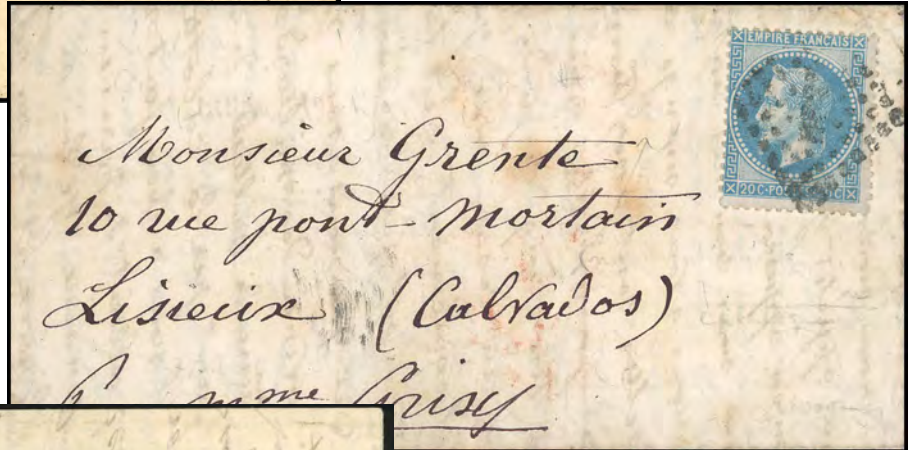 EMPIRE FRANCAIS
20 C·POST
Monsieur Grente
10 rue pont-Mortain
Lisieux (Calvados)
mme Grisy